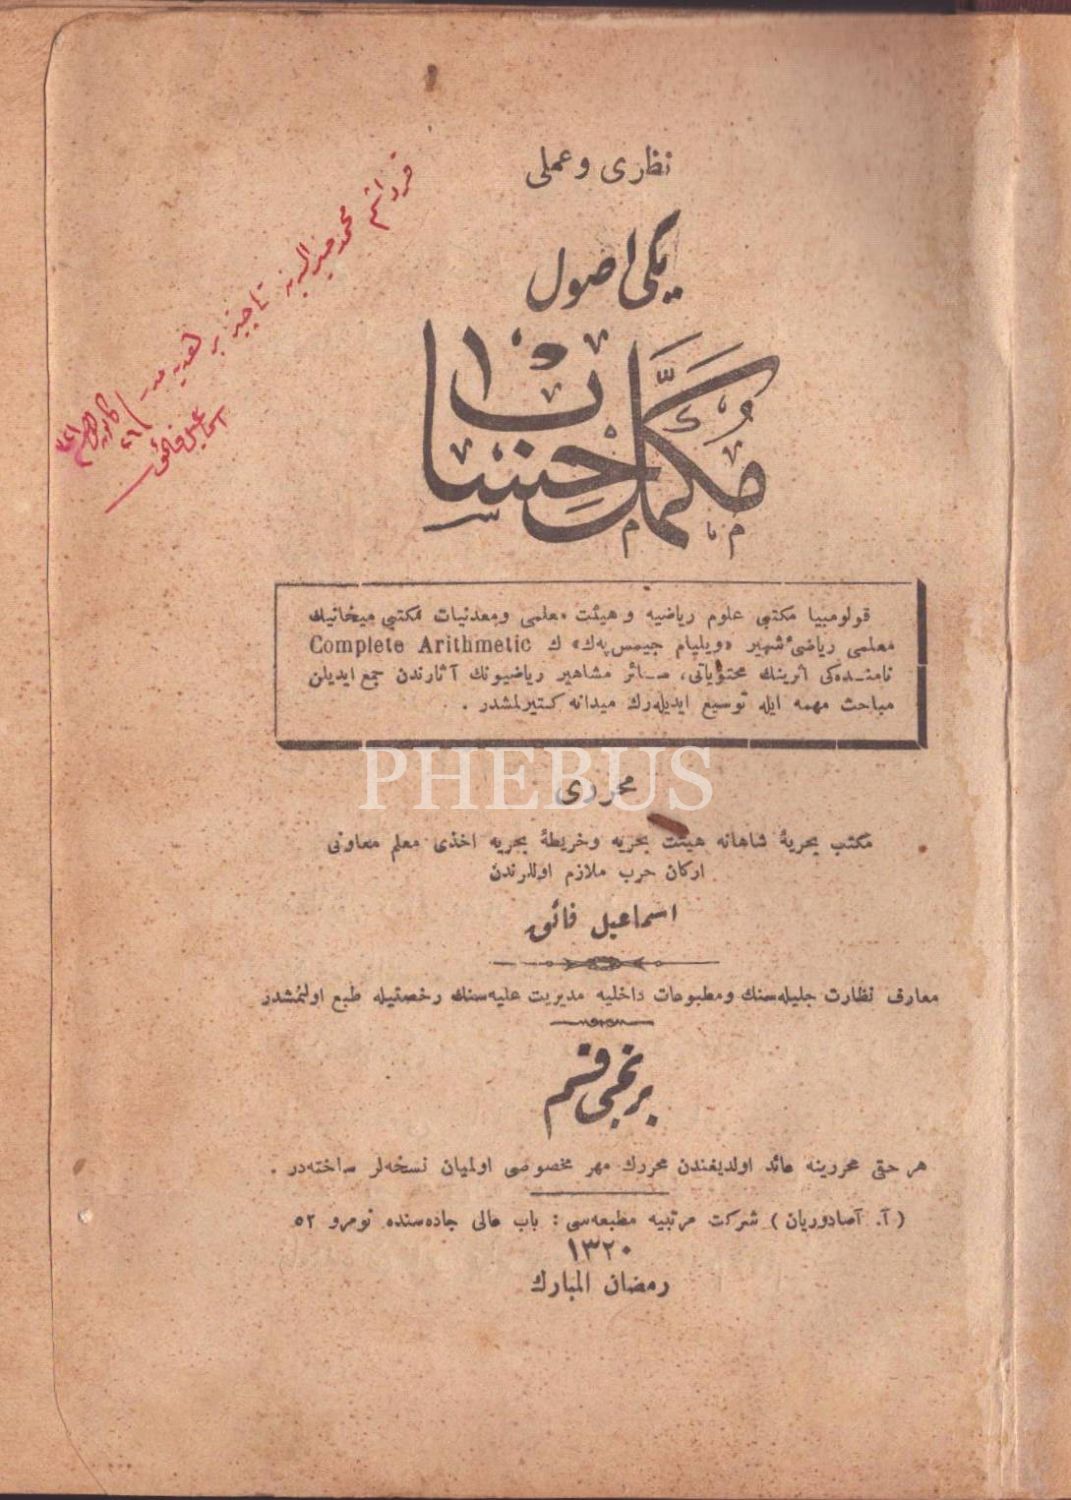 نظری و عملی
یکی اصول
مکمل حساب
قولومبیا مکتبی علوم ریاضیه و هیئت معلمی ومعدنیات مکتبی میخانیك
معلمی ریاضیٔ شهیر «ویلیام جیمس پهك» ك Complete Arithmetic
نامنـدهکی اثرینك محتویاتی، سـائر مشاهیر ریاضیونك آثارندن جمع ایدیلن
مباحث مهمه ایله توسیع ایدیلهرك میدانه کتیرلمشدر .
PHEBUS
محرری
مکتب بحریهٔ شاهانه هیئت بحریه وخریطهٔ بحریه اخذی معلم معاونی
ارکان حرب ملازم اوللرندن
اسماعیل فائق
معارف نظارت جلیلهسنك ومطبوعات داخلیه مدیریت علیهسنك رخصتیله طبع اولنمشدر
برنجی قسم
هر حقی محررینه عائد اولدیغندن محررك مهر مخصوصی اولمیان نسخهلر ساختهدر .
( آ. آصادوریان ) شرکت مرتبیه مطبعهسی : باب عالی جادهسنده نومرو ٥٢
١٣٢٠
رمضان المبارك
اسماعیل فائق